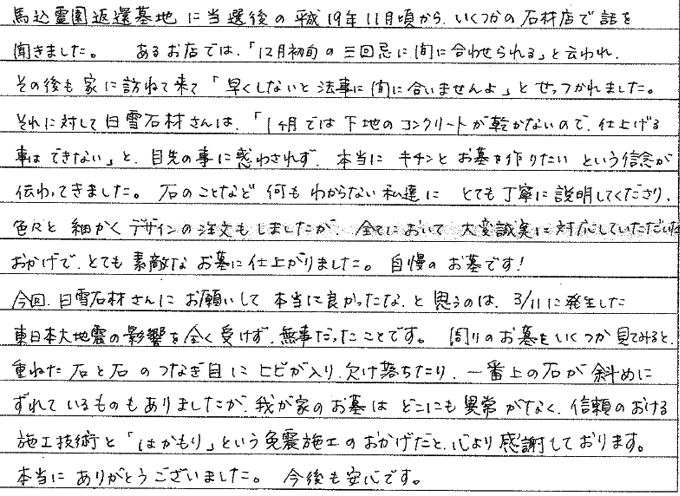 馬込霊園返還墓地に当選後の平成19年11月頃から、いくつかの石材店で話を
聞きました。 あるお店では、「12月初旬の三回忌に間に合わせられる」と云われ、
その後も家に訪ねて来て「早くしないと法事に間に合いませんよ」とせっつかれました。
それに対して白雪石材さんは、「1ヶ月では下地のコンクリートが乾かないので、仕上げる
事はできない」と、目先の事に惑わされず、本当にキチンとお墓を作りたいという信念が
伝わってきました。 石のことなど何もわからない私達にとても丁寧に説明してくださり、
色々と細かくデザインの注文もしましたが、全てにおいて大変誠実に対応していただいた
おかげで、とても素敵なお墓に仕上がりました。 自慢のお墓です!
今回、白雪石材さんにお願いして本当に良かったな、と思うのは、3/11に発生した
東日本大地震の影響を全く受けず、無事だったことです。 周りのお墓をいくつか見てみると、
重ねた石と石のつなぎ目にヒビが入り、欠け落ちたり、一番上の石が斜めに
ずれているものもありましたが、我が家のお墓はどこにも異常がなく、信頼のおける
施工技術と「はかもり」という免震施工のおかげだと、心より感謝しております。
本当にありがとうございました。 今後も安心です。